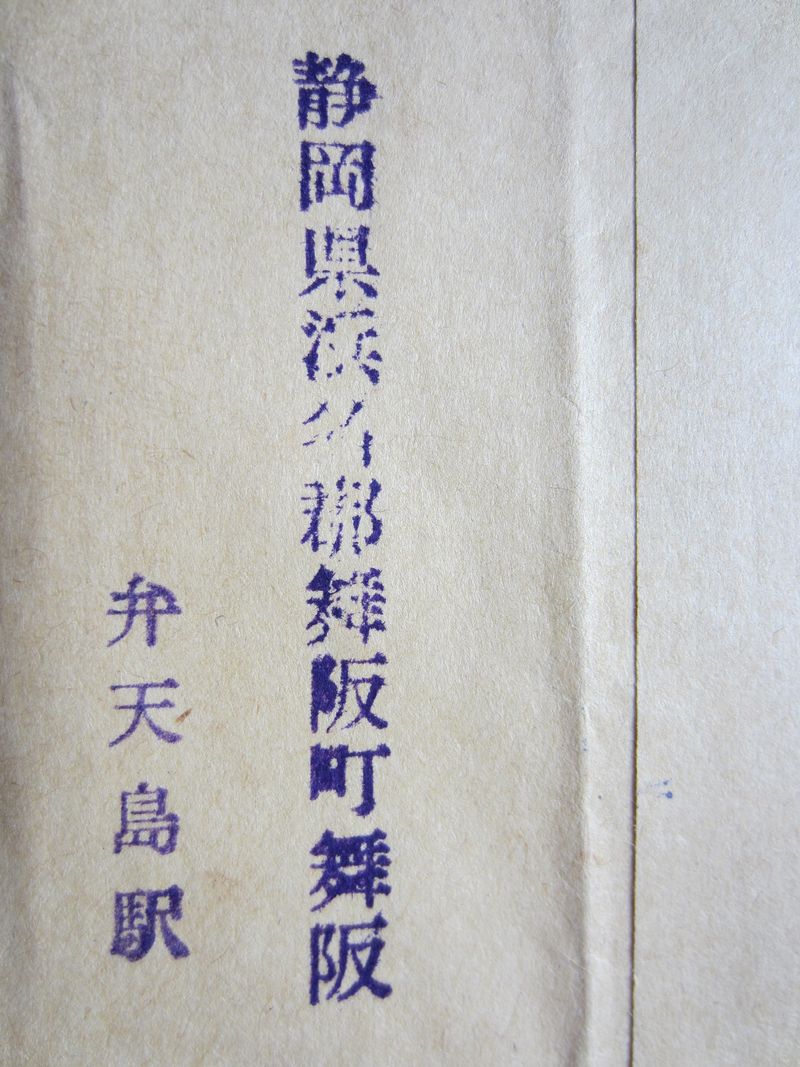 静岡県浜名郡舞阪町舞阪
弁天島駅